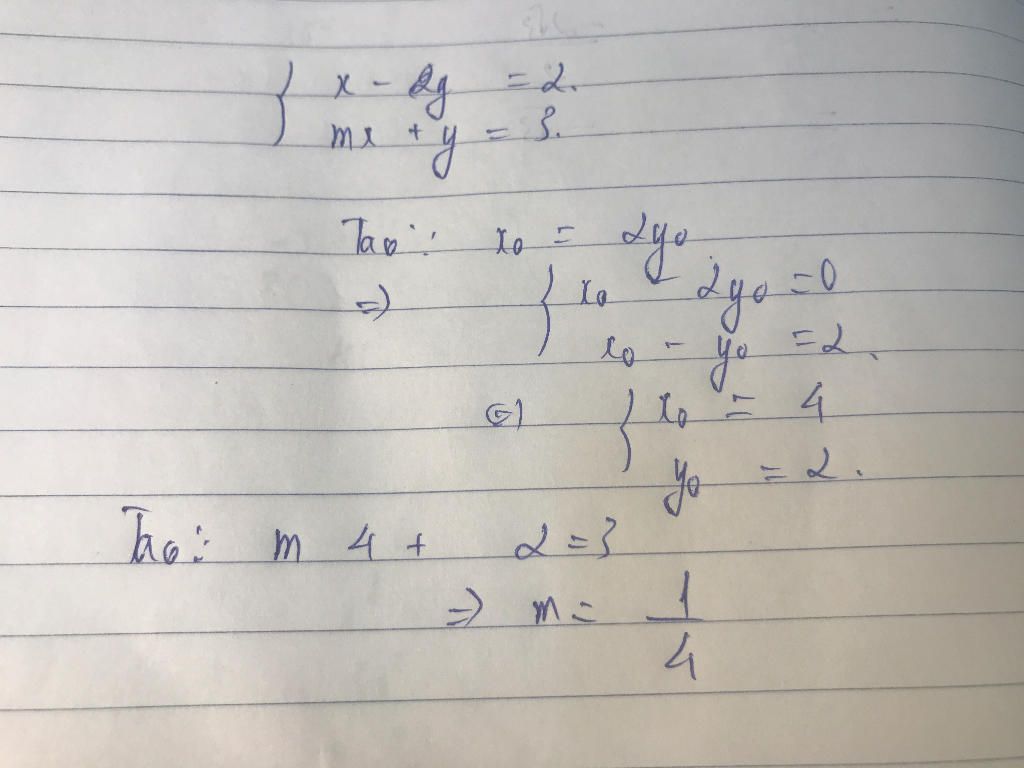 { x - 2y = 2.
mx + y = 3.
Ta có: x₀ = 2y₀
=> { x₀ - 2y₀ = 0
x₀ - y₀ = 2.
<=> { x₀ = 4
y₀ = 2.
Ta có: m 4 + 2 = 3
=> m = 1/4